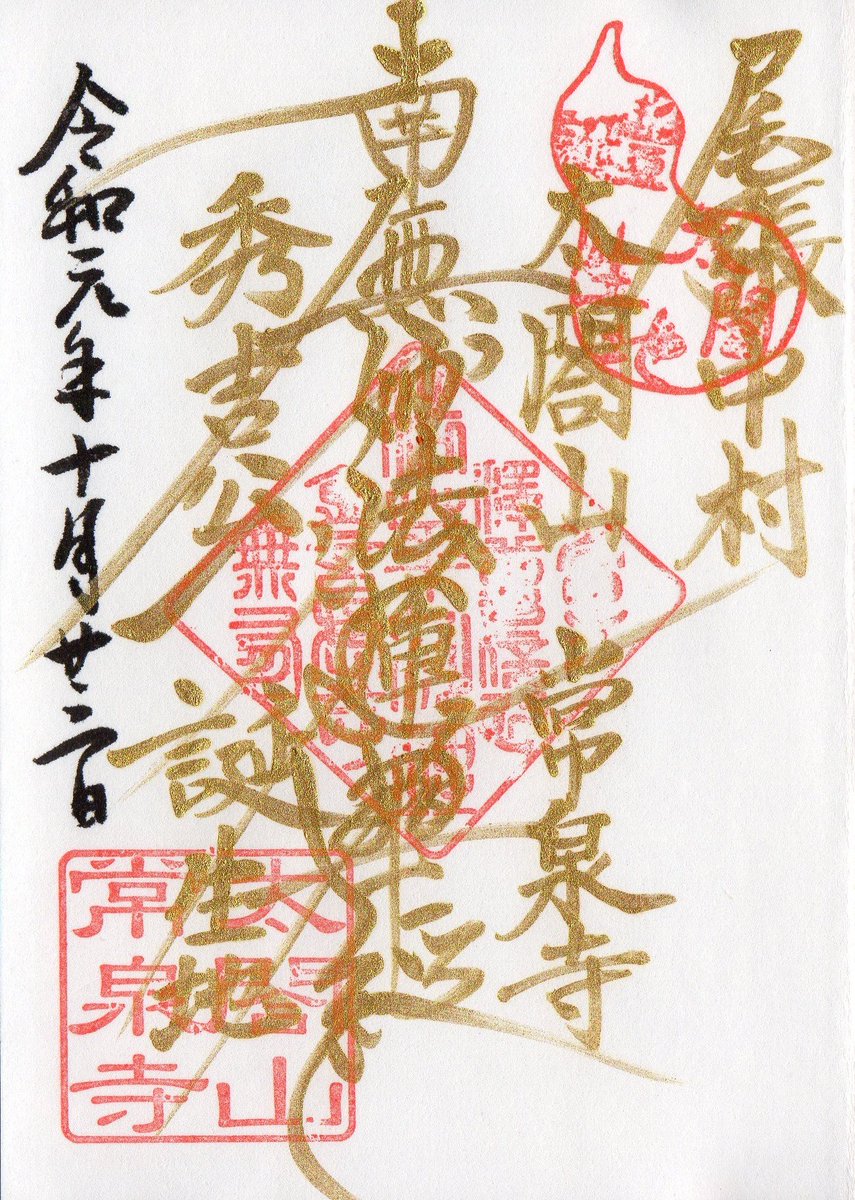 尾張中村
太閤山 常泉寺
南無妙法蓮華経
秀吉公 誕生地
令和元年十月廿二日
太閤山
常泉寺